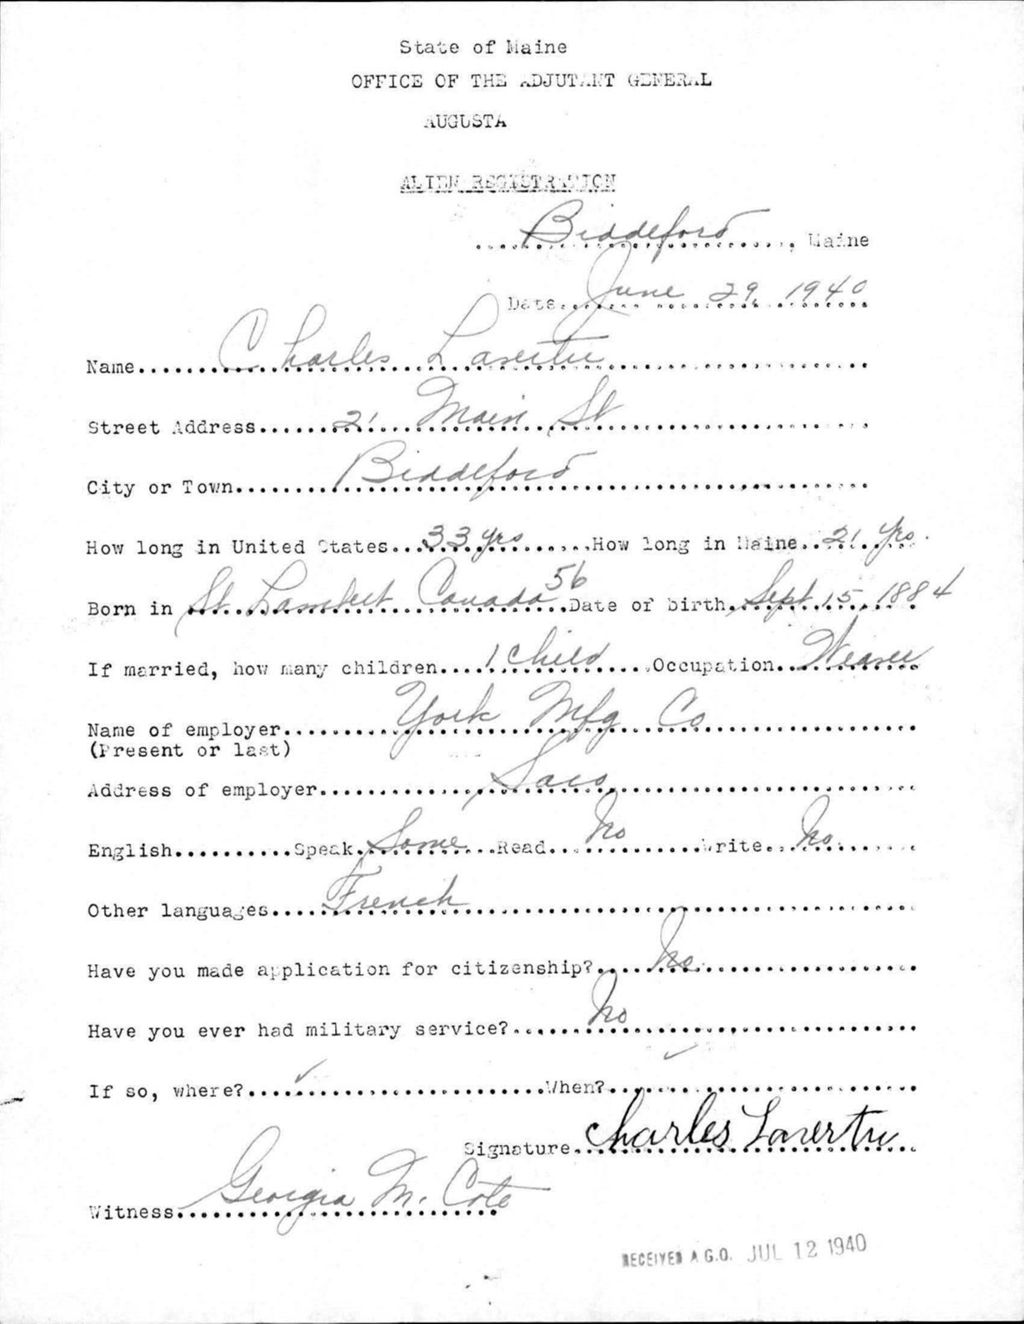 State of Maine
OFFICE OF THE ADJUTANT GENERAL
AUGUSTA
ALIEN REGISTRATION
Biddeford, Maine
Date June 29, 1940
Name Charles Lavertu
Street Address 21 Main St
City or Town Biddeford
How long in United States 33 yrs How long in Maine 21 yrs.
Born in St. Lambert Canada 56 Date of birth Sept 15, 1884
If married, how many children 1 child Occupation Weaver
Name of employer York Mfg Co
(Present or last)
Address of employer Saco
English Speak Some Read No Write No
Other languages French
Have you made application for citizenship? No
Have you ever had military service? No
If so, where? ✓ When? ✓
Signature Charles Lavertu
Witness Georgia M. Cote
RECEIVED A.G.O. JUL 12 1940